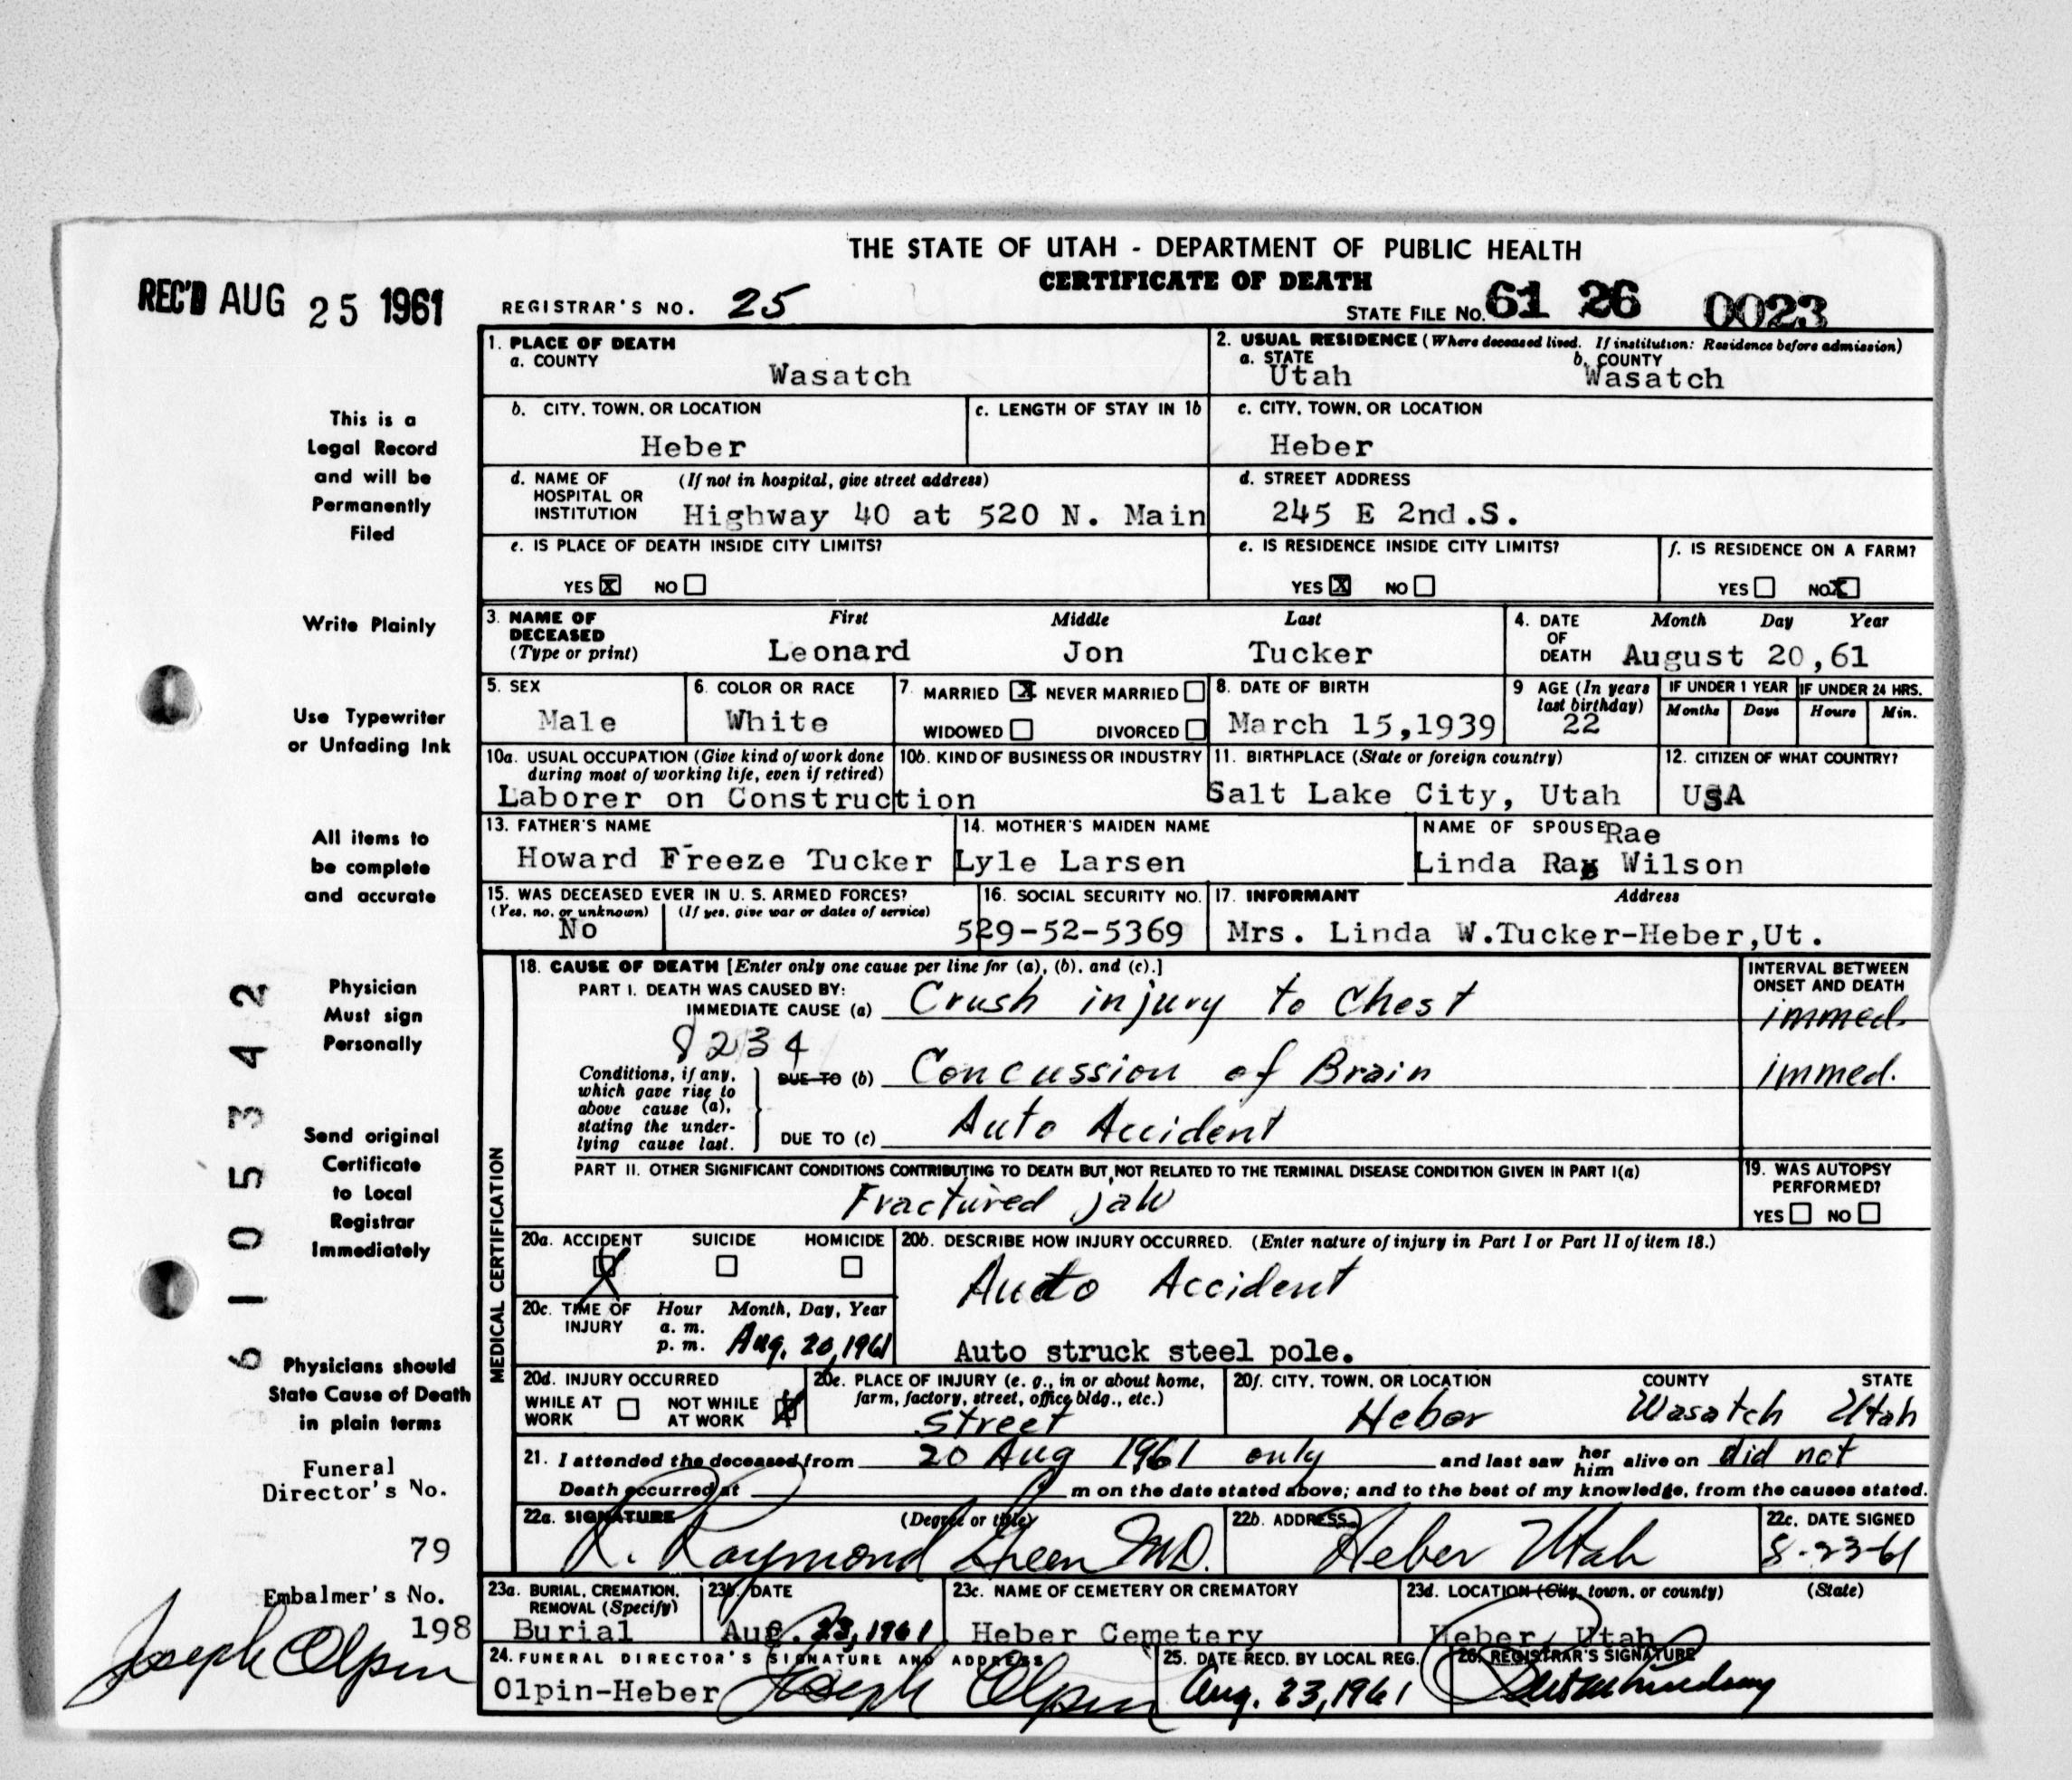 THE STATE OF UTAH - DEPARTMENT OF PUBLIC HEALTH
CERTIFICATE OF DEATH
REC'D AUG 25 1961
REGISTRAR'S NO. 25
STATE FILE NO. 61 26 0023
This is a
Legal Record
and will be
Permanently
Filed
Write Plainly
Use Typewriter
or Unfading Ink
All items to
be complete
and accurate
Physician
Must sign
Personally
Send original
Certificate
to Local
Registrar
Immediately
Physicians should
State Cause of Death
in plain terms
Funeral
Director's No.
79
Embalmer's No.
198
Joseph Olpin
6105342
1. PLACE OF DEATH
a. COUNTY
Wasatch
2. USUAL RESIDENCE (Where deceased lived. If institution: Residence before admission)
a. STATE b. COUNTY
Utah Wasatch
b. CITY, TOWN, OR LOCATION
Heber
c. LENGTH OF STAY IN 1b
c. CITY, TOWN, OR LOCATION
Heber
d. NAME OF (If not in hospital, give street address)
HOSPITAL OR
INSTITUTION Highway 40 at 520 N. Main
d. STREET ADDRESS
245 E 2nd.S.
e. IS PLACE OF DEATH INSIDE CITY LIMITS?
YES X NO
e. IS RESIDENCE INSIDE CITY LIMITS?
YES X NO
f. IS RESIDENCE ON A FARM?
YES NO X
3. NAME OF First Middle Last
DECEASED
(Type or print) Leonard Jon Tucker
4. DATE Month Day Year
OF
DEATH August 20,61
5. SEX
Male
6. COLOR OR RACE
White
7. MARRIED X NEVER MARRIED
WIDOWED DIVORCED
8. DATE OF BIRTH
March 15,1939
9 AGE (In years
last birthday)
22
IF UNDER 1 YEAR IF UNDER 24 HRS.
Months Days Hours Min.
10a. USUAL OCCUPATION (Give kind of work done
during most of working life, even if retired)
Laborer on Construction
10b. KIND OF BUSINESS OR INDUSTRY
11. BIRTHPLACE (State or foreign country)
Salt Lake City, Utah
12. CITIZEN OF WHAT COUNTRY?
USA
13. FATHER'S NAME
Howard Freeze Tucker
14. MOTHER'S MAIDEN NAME
Lyle Larsen
NAME OF SPOUSE Rae
Linda Ray Wilson
15. WAS DECEASED EVER IN U. S. ARMED FORCES?
(Yes, no, or unknown) (If yes, give war or dates of service)
No
16. SOCIAL SECURITY NO.
529-52-5369
17. INFORMANT Address
Mrs. Linda W.Tucker-Heber,Ut.
MEDICAL CERTIFICATION
18. CAUSE OF DEATH [Enter only one cause per line for (a), (b), and (c).]
PART I. DEATH WAS CAUSED BY:
IMMEDIATE CAUSE (a) Crush injury to Chest
INTERVAL BETWEEN
ONSET AND DEATH
immed.
8234
Conditions, if any,
which gave rise to
above cause (a),
stating the under-
lying cause last.
DUE TO (b) Concussion of Brain
immed.
DUE TO (c) Auto Accident
PART II. OTHER SIGNIFICANT CONDITIONS CONTRIBUTING TO DEATH BUT NOT RELATED TO THE TERMINAL DISEASE CONDITION GIVEN IN PART I(a)
Fractured jaw
19. WAS AUTOPSY
PERFORMED?
YES NO
20a. ACCIDENT SUICIDE HOMICIDE
X
20b. DESCRIBE HOW INJURY OCCURRED. (Enter nature of injury in Part I or Part II of item 18.)
Auto Accident
Auto struck steel pole.
20c. TIME OF Hour Month, Day, Year
INJURY a. m.
p. m. Aug. 20,1961
20d. INJURY OCCURRED
WHILE AT NOT WHILE
WORK AT WORK X
20e. PLACE OF INJURY (e. g., in or about home,
farm, factory, street, office bldg., etc.)
street
20f. CITY, TOWN, OR LOCATION COUNTY STATE
Heber Wasatch Utah
21. I attended the deceased from 20 Aug 1961 only and last saw her him alive on did not
Death occurred at m on the date stated above; and to the best of my knowledge, from the causes stated.
22a. SIGNATURE (Degree or title)
R. Raymond Green M.D.
22b. ADDRESS
Heber Utah
22c. DATE SIGNED
8-23-61
23a. BURIAL, CREMATION,
REMOVAL (Specify)
Burial
23b. DATE
Aug. 23,1961
23c. NAME OF CEMETERY OR CREMATORY
Heber Cemetery
23d. LOCATION (City, town, or county) (State)
Heber, Utah
24. FUNERAL DIRECTOR'S SIGNATURE AND ADDRESS
Olpin-Heber Joseph Olpin
25. DATE RECD. BY LOCAL REG.
Aug. 23,1961
26. REGISTRAR'S SIGNATURE